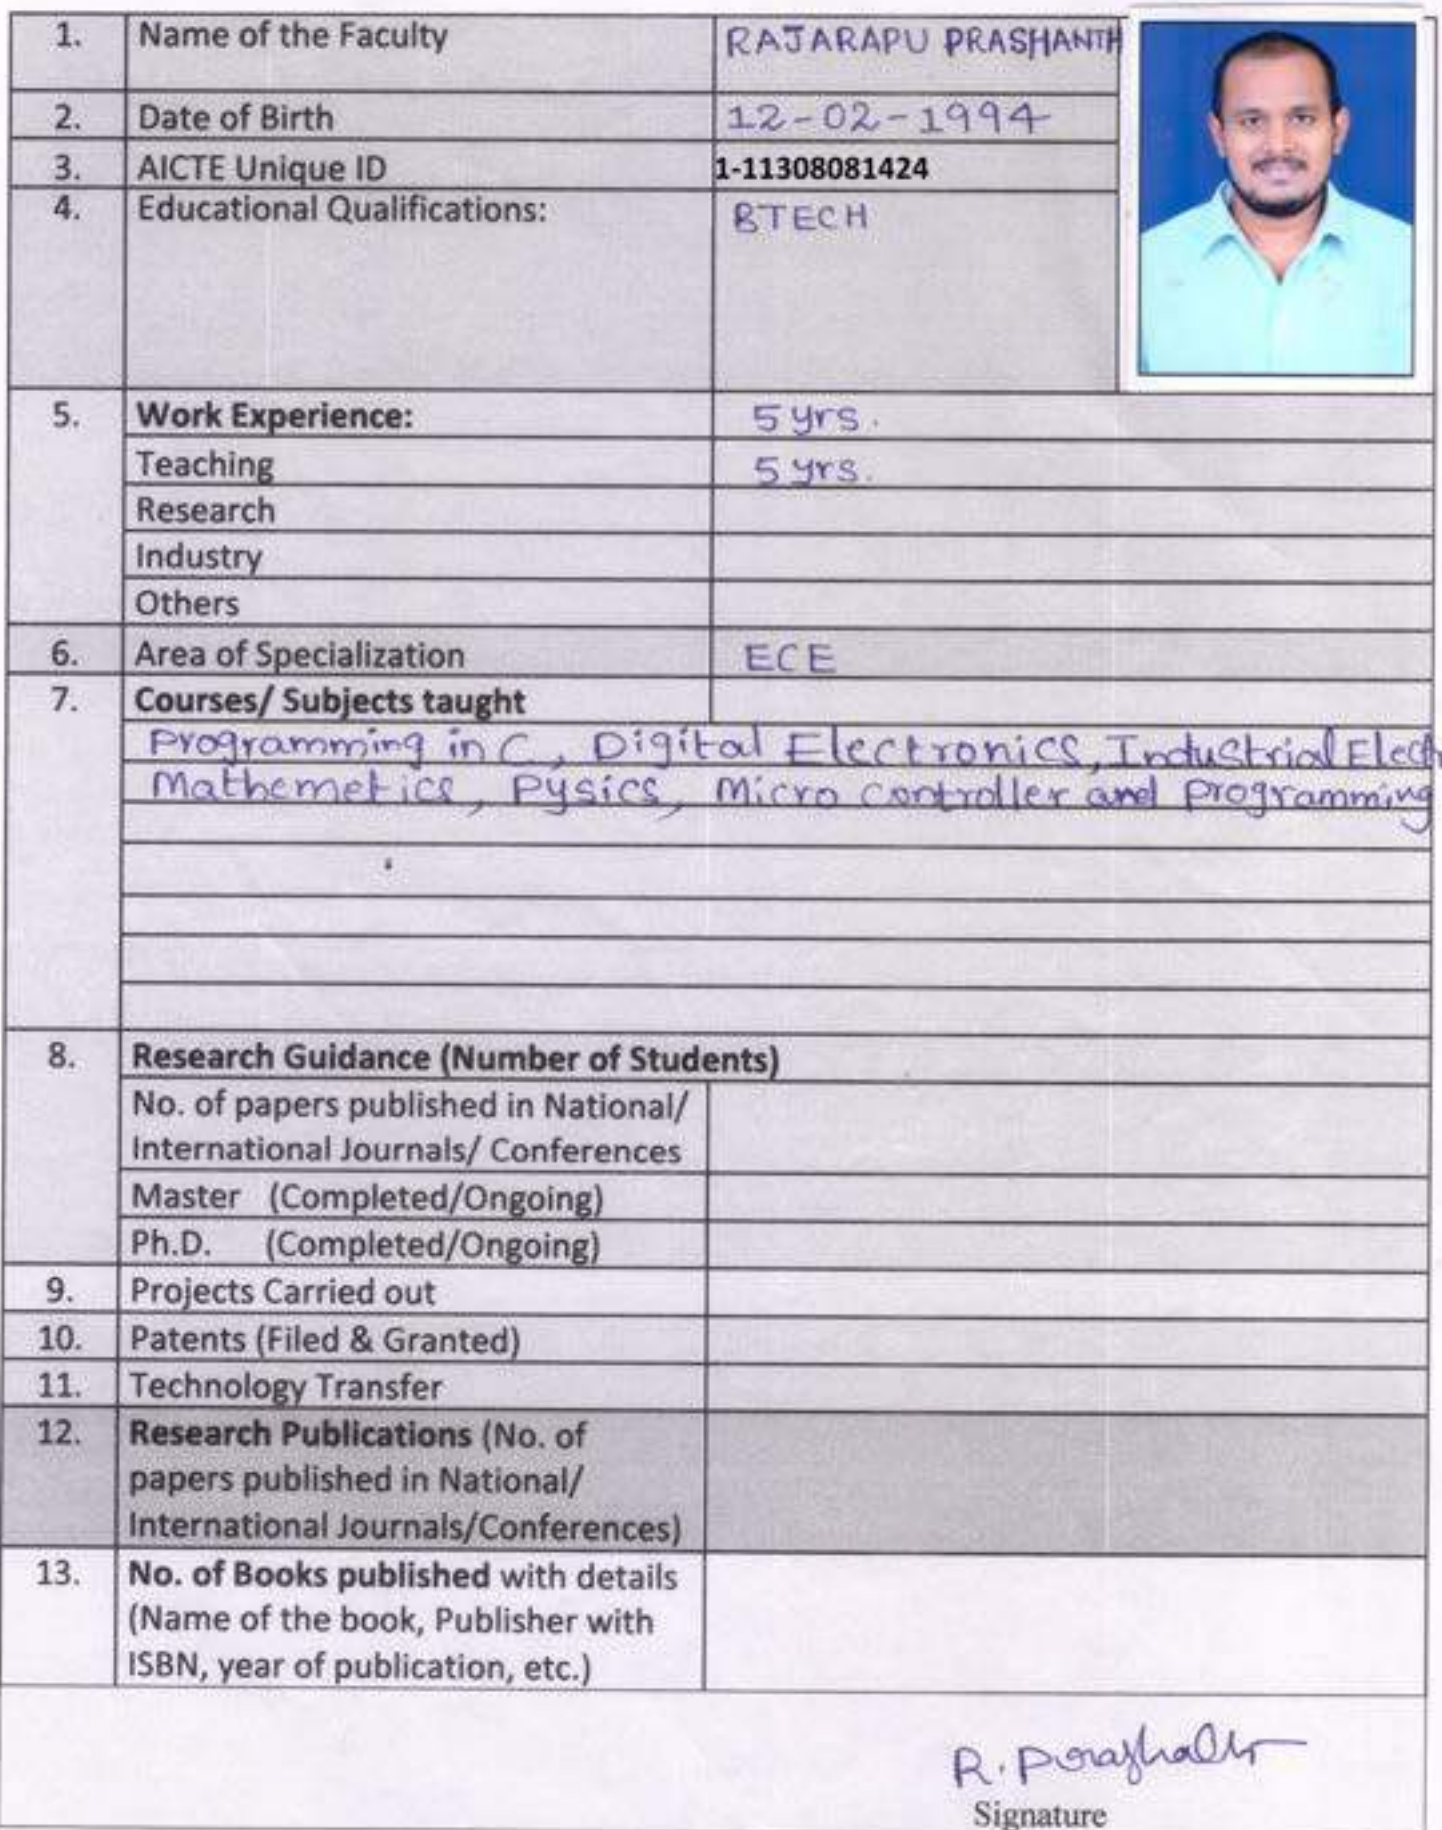 1. Name of the Faculty RAJARAPU PRASHANTH
2. Date of Birth 12-02-1994
3. AICTE Unique ID 1-11308081424
4. Educational Qualifications: BTECH
5. Work Experience: 5 yrs.
Teaching 5 yrs.
Research
Industry
Others
6. Area of Specialization ECE
7. Courses/ Subjects taught
Programming in C, Digital Electronics, Industrial Elect
Mathemetics, Pysics, Micro controller and programming
8. Research Guidance (Number of Students)
No. of papers published in National/
International Journals/ Conferences
Master (Completed/Ongoing)
Ph.D. (Completed/Ongoing)
9. Projects Carried out
10. Patents (Filed & Granted)
11. Technology Transfer
12. Research Publications (No. of
papers published in National/
International Journals/Conferences)
13. No. of Books published with details
(Name of the book, Publisher with
ISBN, year of publication, etc.)
R. Prashanth
Signature